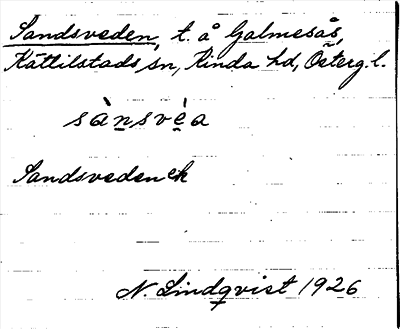 Sandsveden, t. å Galmesås,
Kättilstads sn, Kinda hd, Österg. l.
sànsvèa
Sandsveden ek
N. Lindqvist 1926